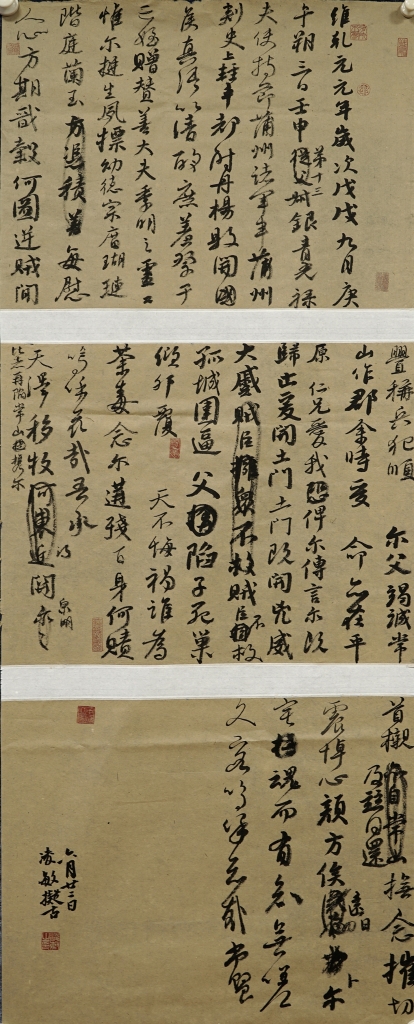 維乾元元年歲次戊戌九月庚
午朔三日壬申第十三叔銀青光祿
夫使持節蒲州諸軍事蒲州
刺史上輕車都尉丹楊縣開國
侯真卿以清酌庶羞祭于
亡姪贈贊善大夫季明之靈曰
惟爾挺生夙標幼德宗廟瑚璉
階庭蘭玉方憑積善每慰
人心方期戩穀何圖逆賊間
釁稱兵犯順 爾父竭誠常
山作郡余時受 命亦在平
原仁兄愛我恐俾爾傳言爾既
歸止爰開土門土門既開兇威
大蹙賊臣擁眾不救賊臣不救
孤城圍逼父陷子死巢
傾卵覆 天不悔禍誰為
荼毒念爾遘殘百身何贖
嗚呼哀哉吾承
天澤移牧河東近河關泉明
比者再陷常山攜爾
首櫬及茲同還撫念摧切
震悼心顏方俟遠日卜爾
宅魂而有知無嗟
久客嗚呼哀哉尚饗
六月廿二日
凌敏擬古